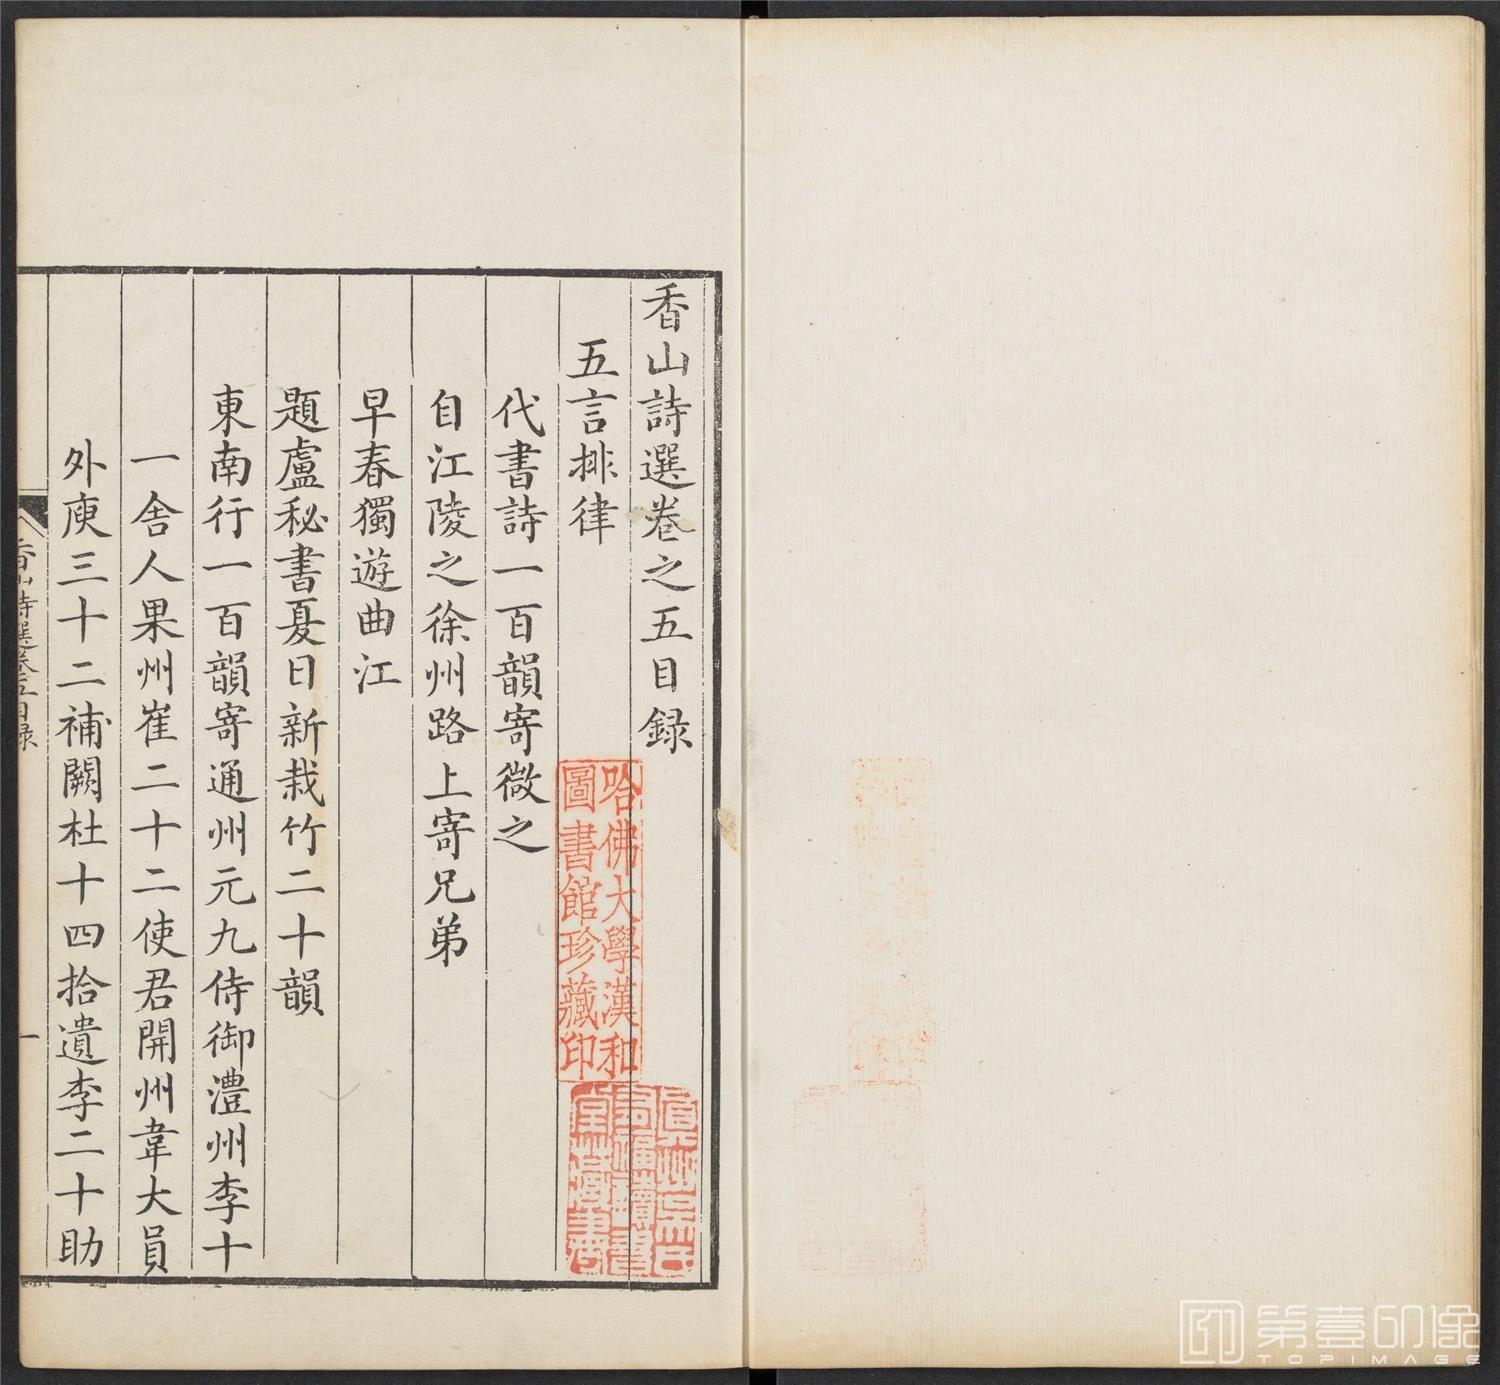 香山詩選卷之五目録
五言排律
代書詩一百韻寄微之
自江陵之徐州路上寄兄弟
早春獨遊曲江
題盧秘書夏日新栽竹二十韻
東南行一百韻寄通州元九侍御澧州李十
一舍人果州崔二十二使君開州韋大員
外庾三十二補闕杜十四拾遺李二十助
香山詩選卷五目録
一
哈佛大學漢和
圖書館珍藏印
第壹印像
TOPIMAGE